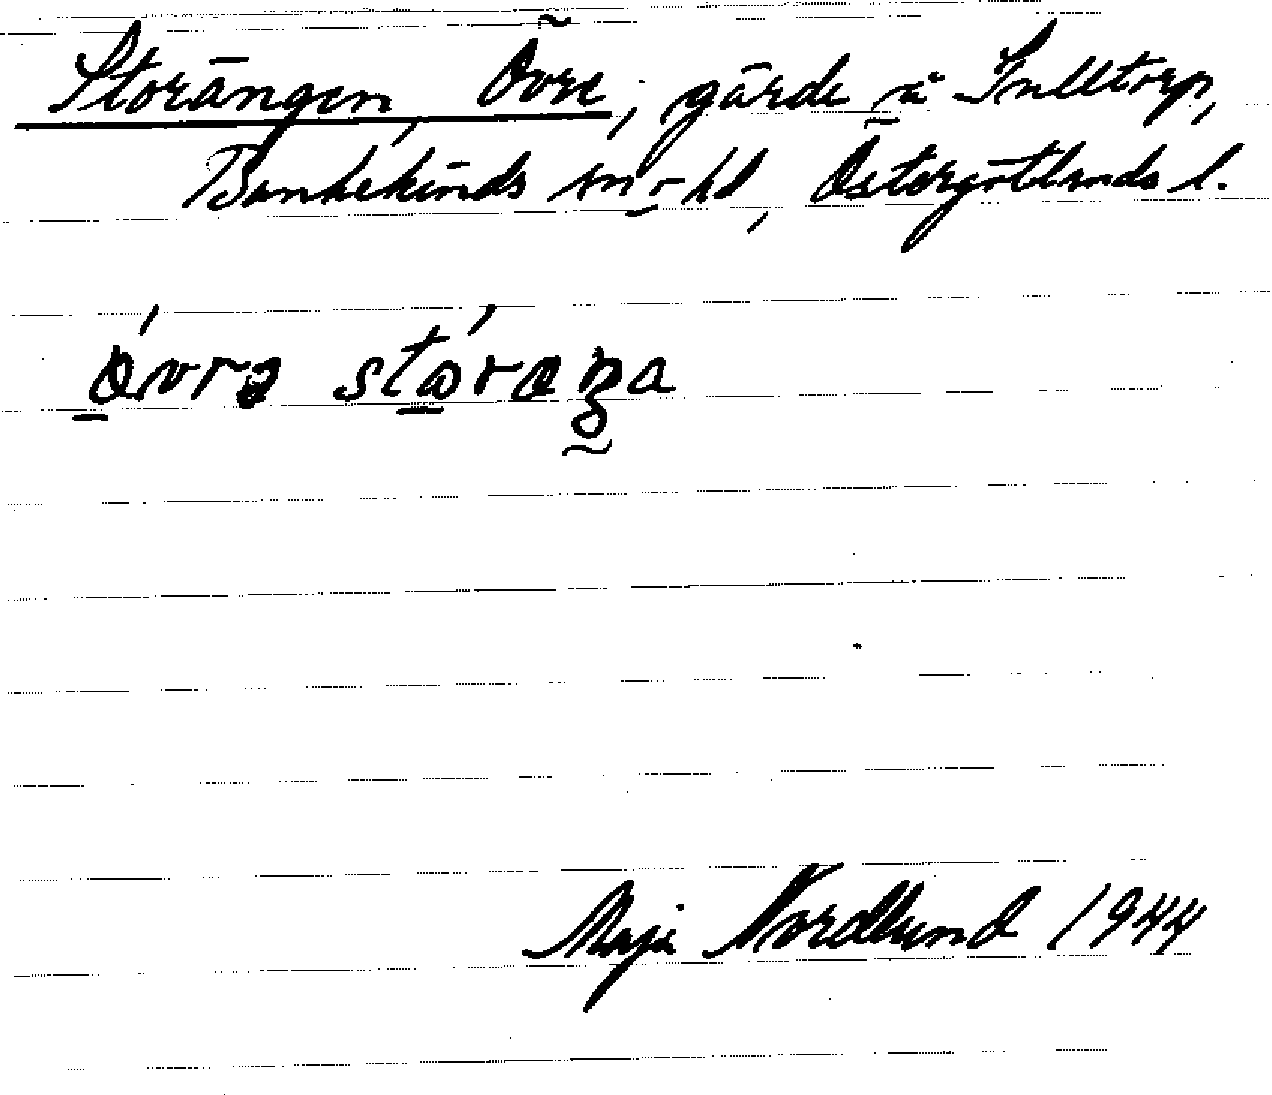 Storängen, Övre, gärde å
Bankekinds sn o hd, Östergötlands l.
övrə stóraŋa
Maja Nordlund 1944